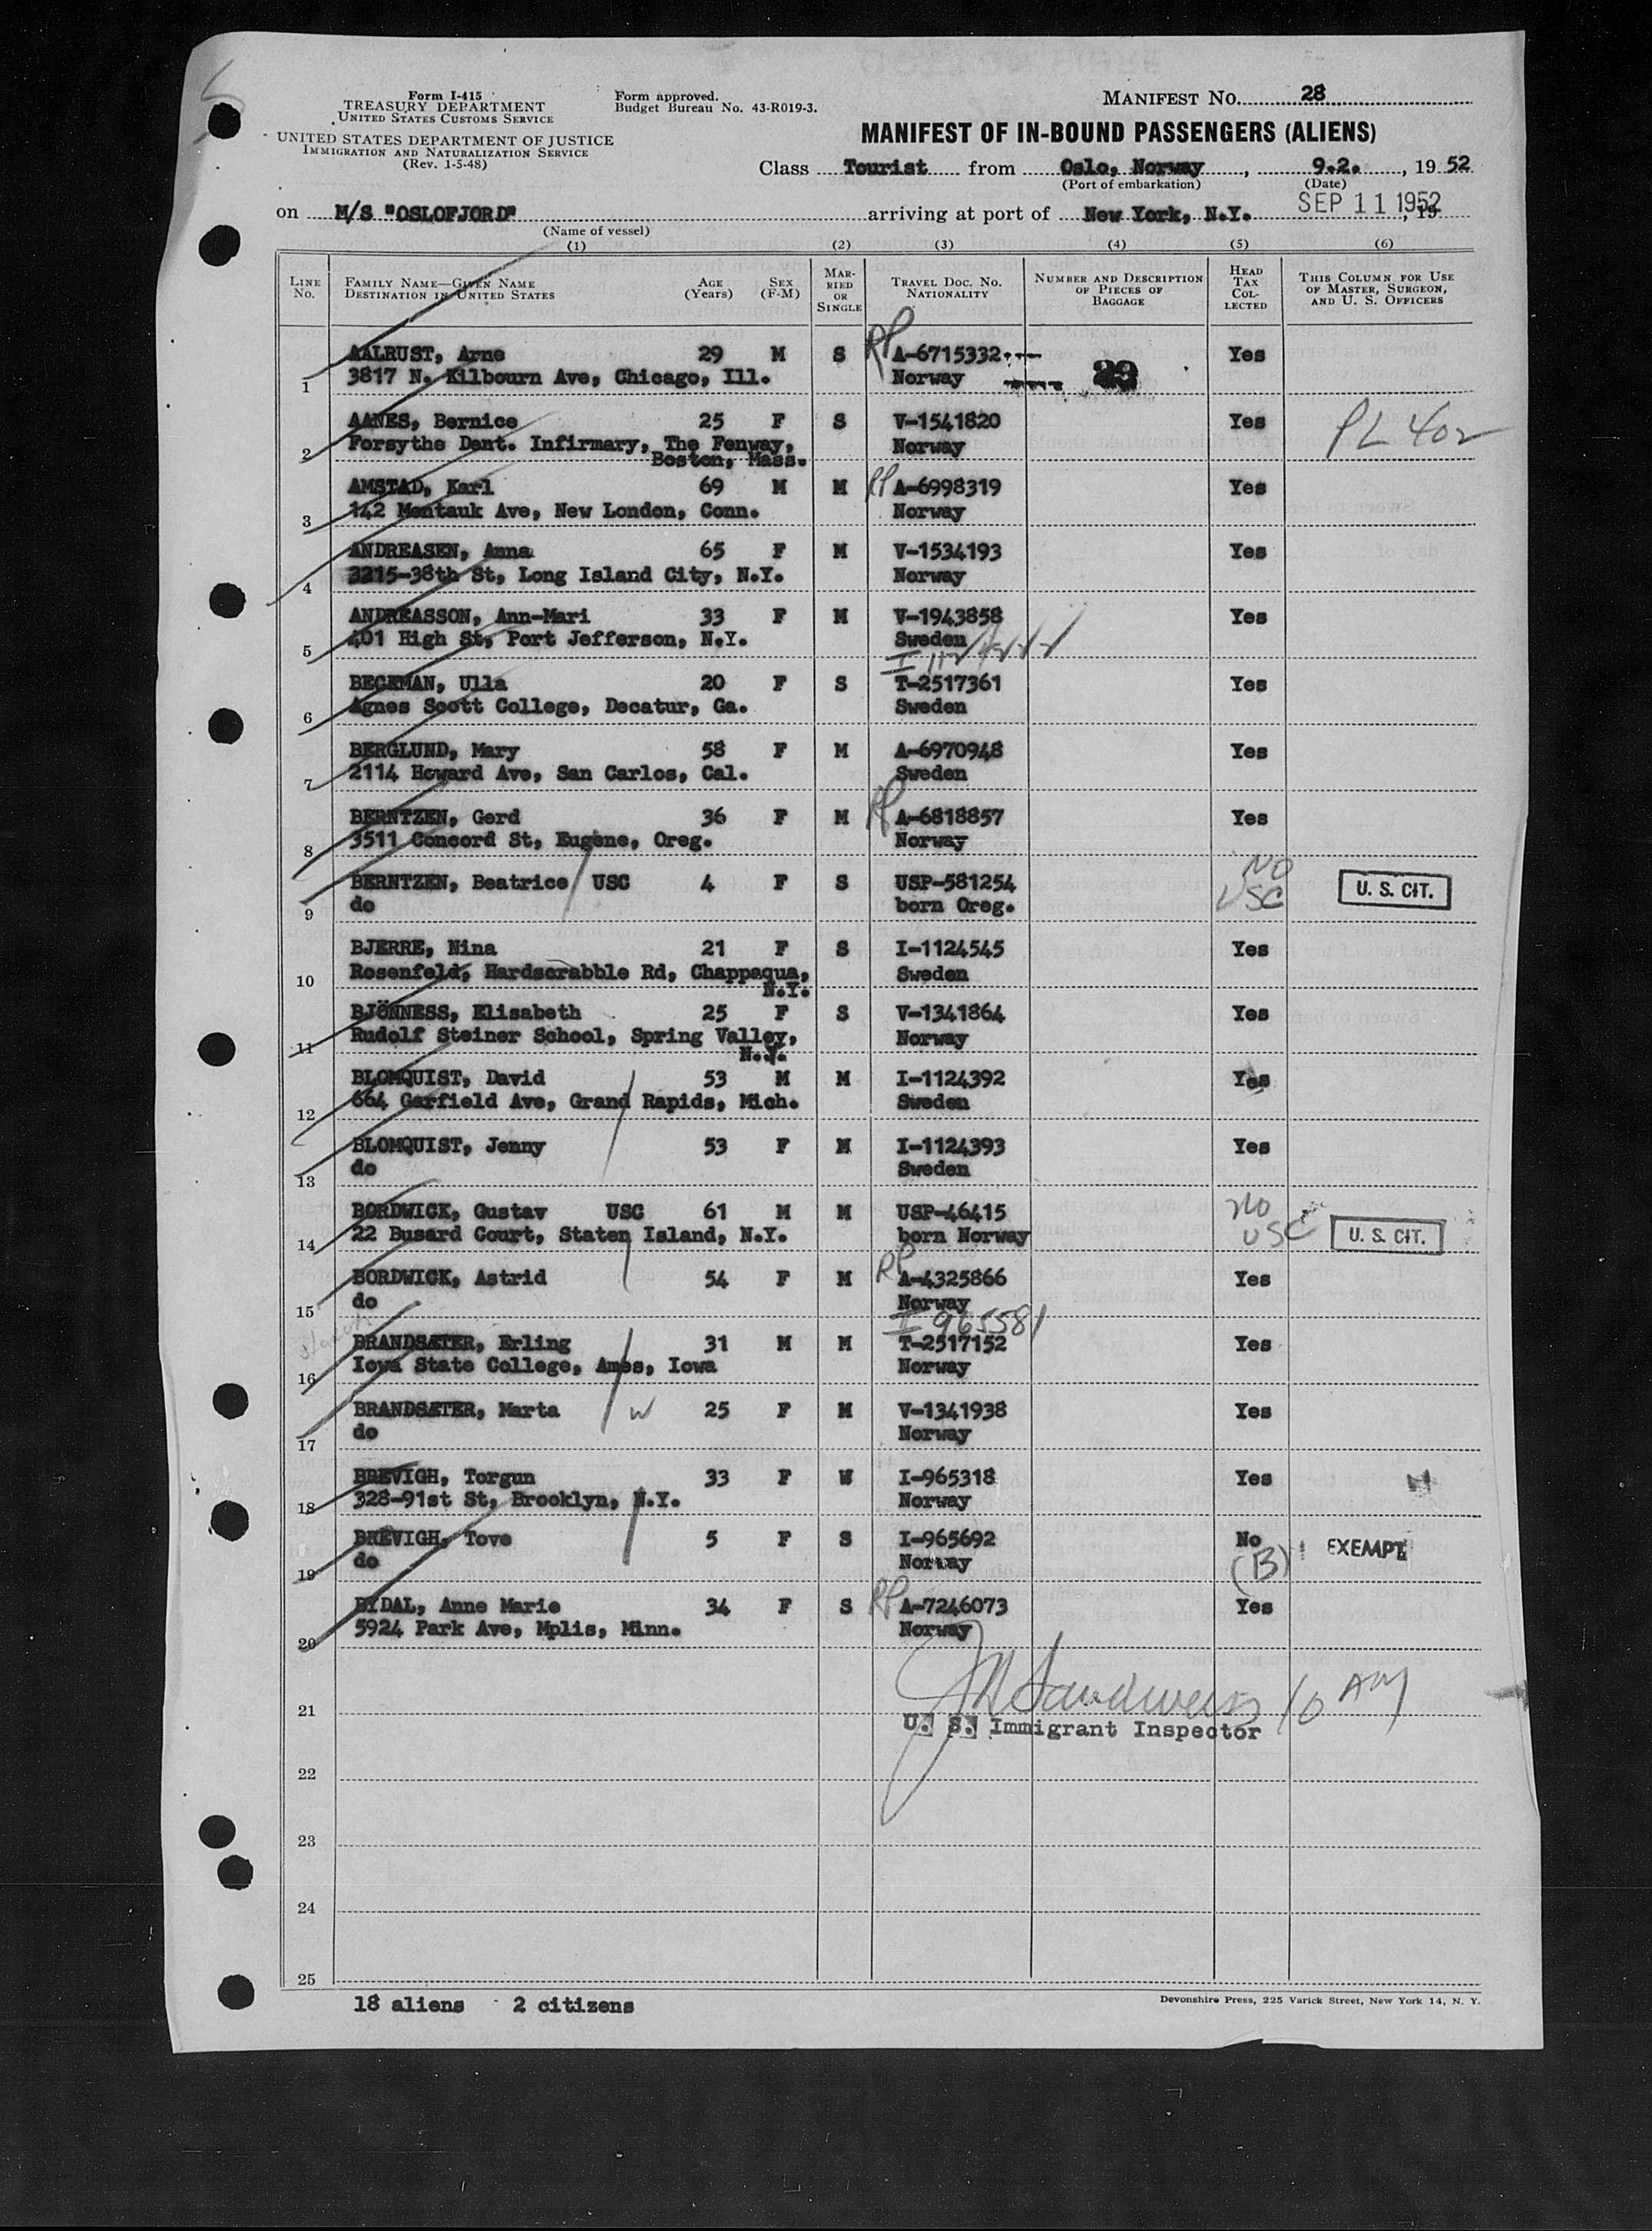 Form I-415
TREASURY DEPARTMENT
UNITED STATES CUSTOMS SERVICE
UNITED STATES DEPARTMENT OF JUSTICE
IMMIGRATION AND NATURALIZATION SERVICE
(Rev. 1-5-48)
Form approved.
Budget Bureau No. 43-R019-3.
MANIFEST NO. 28
MANIFEST OF IN-BOUND PASSENGERS (ALIENS)
Class Tourist from Oslo, Norway, 9.2., 19 52
(Port of embarkation) (Date)
on M/S "OSLOFJORD" arriving at port of New York, N.Y. SEP 11 1952, 19
(Name of vessel)
(1) (2) (3) (4) (5) (6)
LINE NO. FAMILY NAME—GIVEN NAME DESTINATION IN UNITED STATES AGE (YEARS) SEX (F-M) MARRIED OR SINGLE TRAVEL DOC. NO. NATIONALITY NUMBER AND DESCRIPTION OF PIECES OF BAGGAGE HEAD TAX COLLECTED THIS COLUMN FOR USE OF MASTER, SURGEON, AND U. S. OFFICERS
AALRUST, Arne 29 M S RP A-6715332 Yes
1 3817 N. Kilbourn Ave, Chicago, Ill. Norway
AANES, Bernice 25 F S V-1541820 Yes PL 402
2 Forsythe Dent. Infirmary, The Fenway, Norway
Boston, Mass.
AMSTAD, Karl 69 M M RP A-6998319 Yes
3 142 Montauk Ave, New London, Conn. Norway
ANDREASEN, Anna 65 F M V-1534193 Yes
4 2215-38th St, Long Island City, N.Y. Norway
ANDREASSON, Ann-Mari 33 F M V-1943858 Yes
5 401 High St, Port Jefferson, N.Y. Sweden
BECKMAN, Ulla 20 F S T-2517361 Yes
6 Agnes Scott College, Decatur, Ga. Sweden
BERGLUND, Mary 58 F M A-6970948 Yes
7 2114 Howard Ave, San Carlos, Cal. Sweden
BERNTZEN, Gerd 36 F M RP A-6818857 Yes
8 3511 Concord St, Eugene, Oreg. Norway
BERNTZEN, Beatrice USC 4 F S USP-581254 NO USC U. S. CIT.
9 do born Oreg.
BJERRE, Nina 21 F S I-1124545 Yes
10 Rosenfeld, Hardscrabble Rd, Chappaqua, Sweden
N.Y.
BJÖNNESS, Elisabeth 25 F S V-1341864 Yes
11 Rudolf Steiner School, Spring Valley, Norway
N.Y.
BLOMQUIST, David 53 M M I-1124392 Yes
12 664 Garfield Ave, Grand Rapids, Mich. Sweden
BLOMQUIST, Jenny 53 F M I-1124393 Yes
13 do Sweden
BORDWICK, Gustav USC 61 M M USP-46415 NO USC U. S. CIT.
14 22 Busard Court, Staten Island, N.Y. born Norway
BORDWICK, Astrid 54 F M RP A-4325866 Yes
15 do Norway
I 965581
BRANDSÆTER, Erling 31 M M T-2517152 Yes
16 Iowa State College, Ames, Iowa Norway
BRANDSÆTER, Marta W 25 F M V-1341938 Yes
17 do Norway
BREVIGH, Torgun 33 F W I-965318 Yes
18 328-91st St, Brooklyn, N.Y. Norway
BREVIGH, Tove 5 F S I-965692 No (B) EXEMPT
19 do Norway
BYDAL, Anne Marie 34 F S RP A-7246073 Yes
20 5924 Park Ave, Mplis, Minn. Norway
10 AM
21 U. S. Immigrant Inspector
22
23
24
25
18 aliens - 2 citizens
Devonshire Press, 225 Varick Street, New York 14, N. Y.